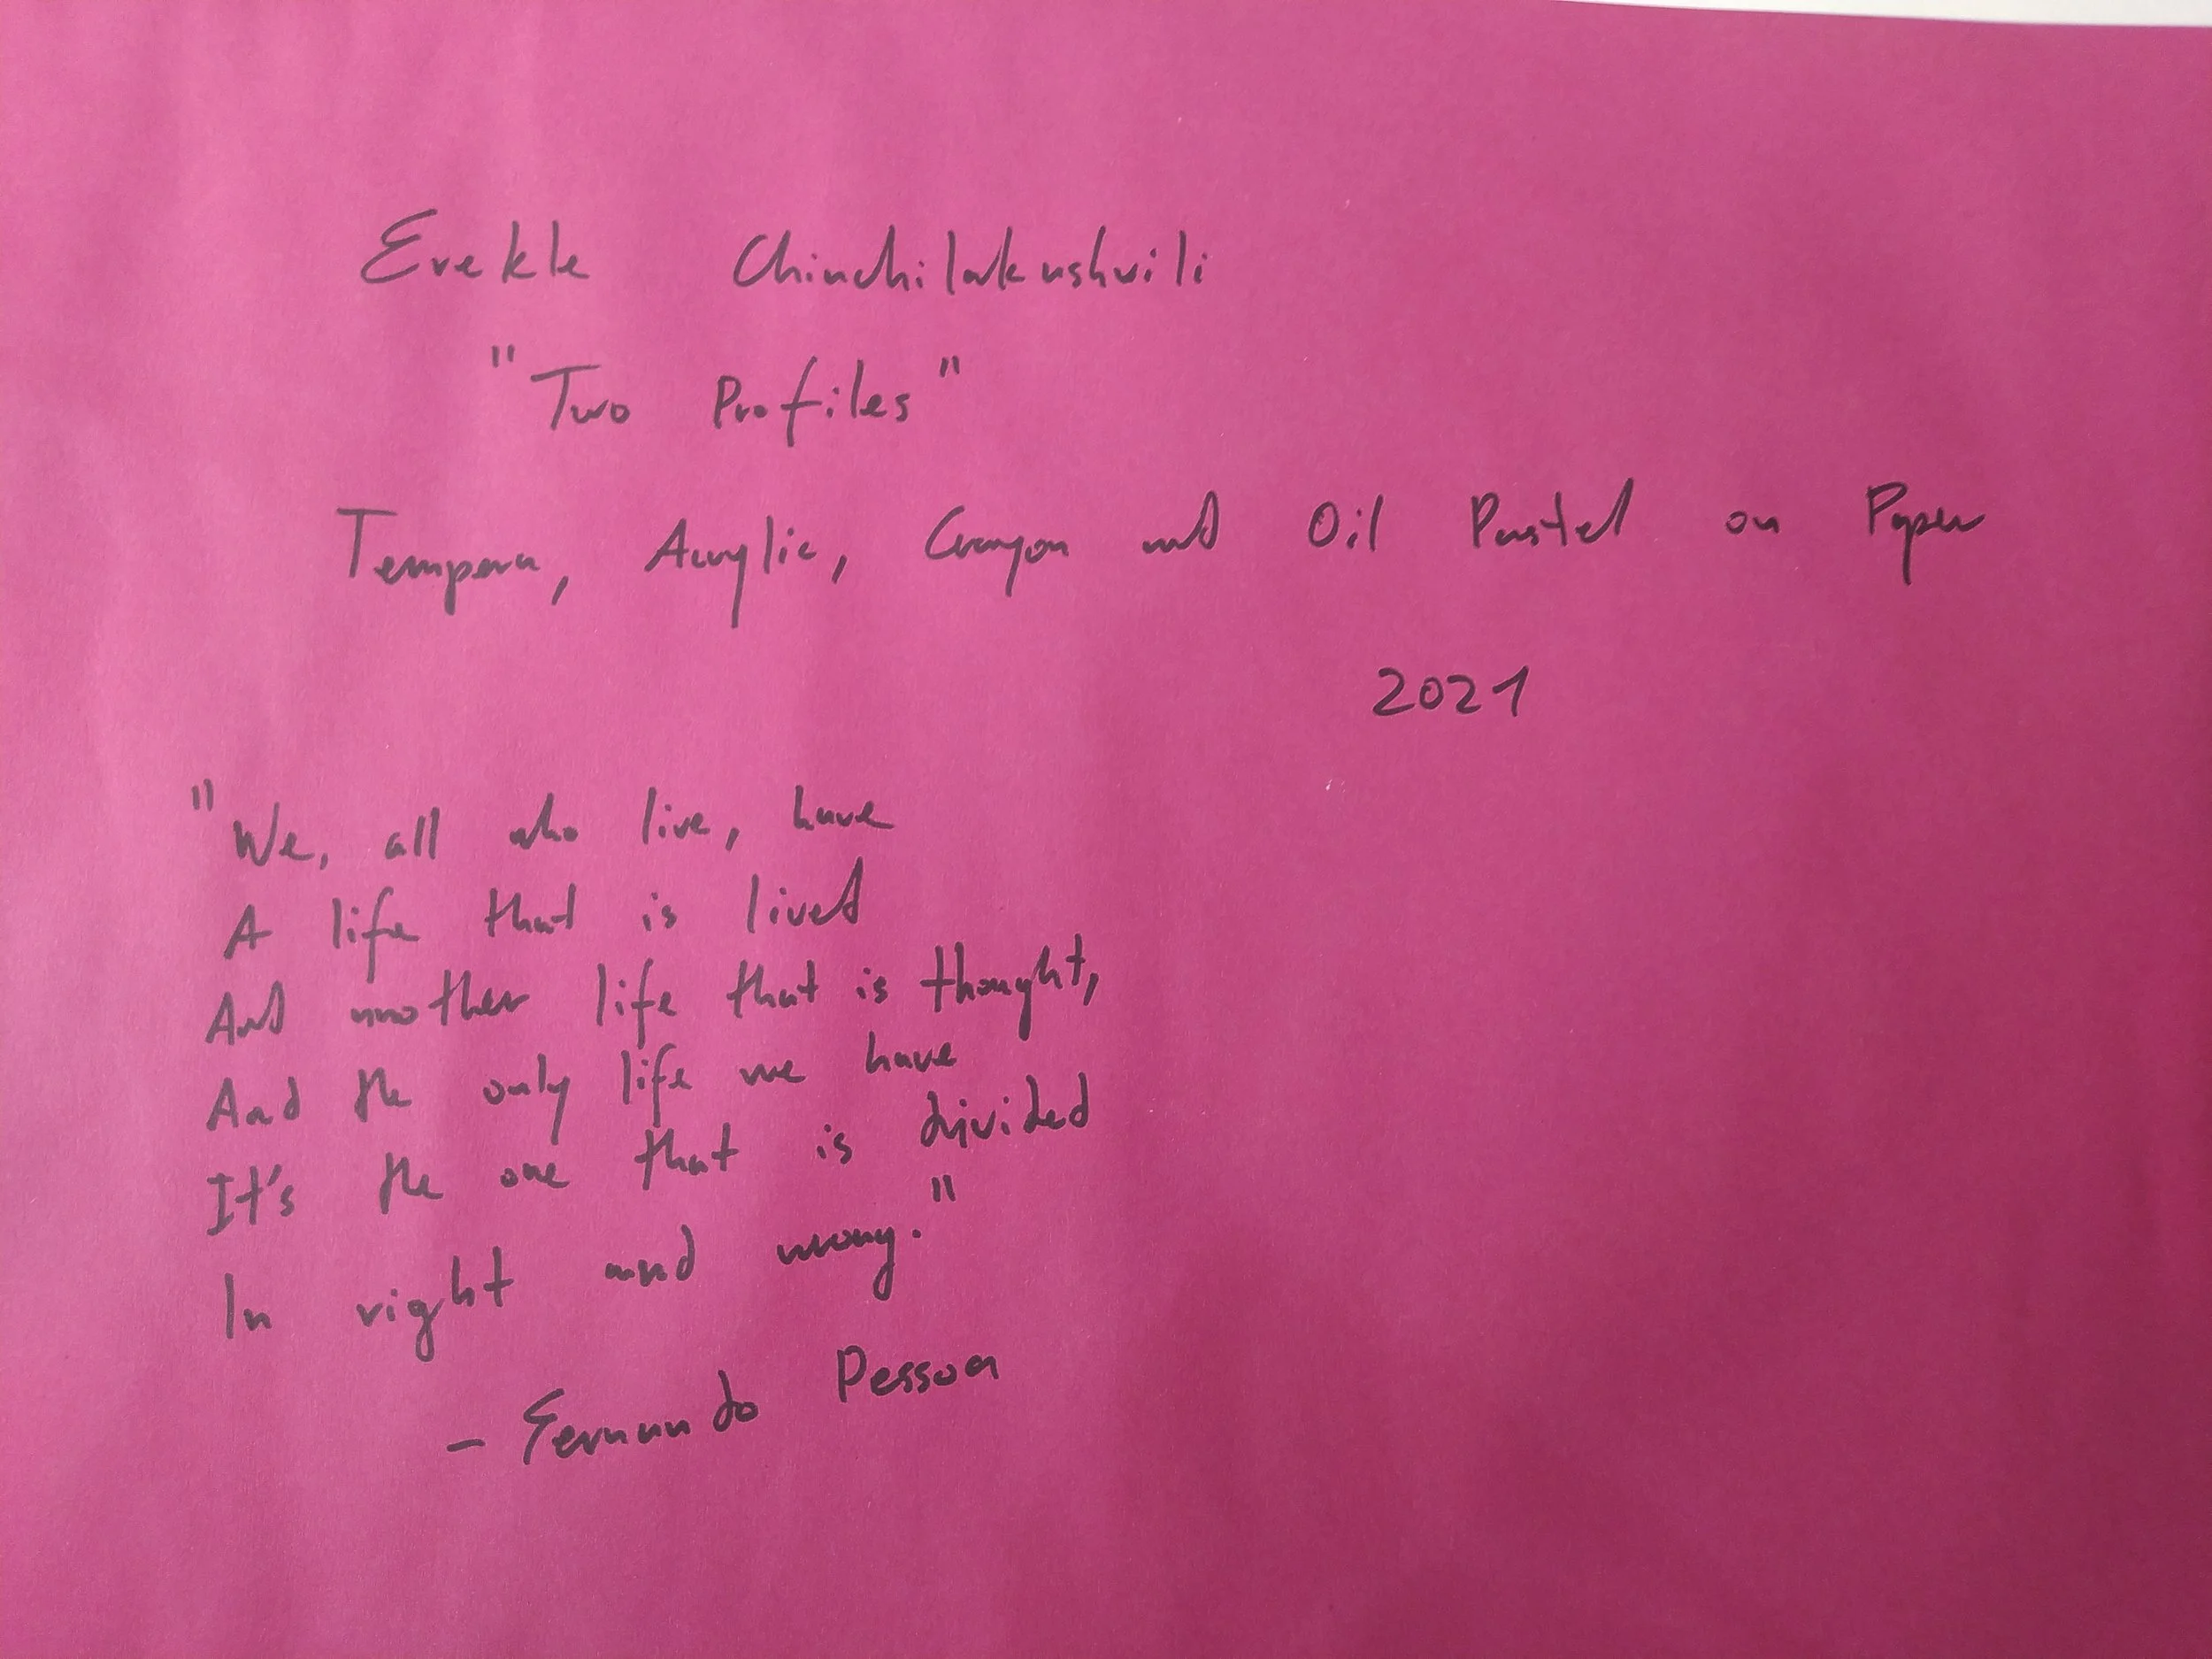 Erekle Chinchilakushvili
"Two Profiles"
Tempera, Acrylic, Crayon and Oil Pastel on Paper
2021
"We, all who live, have
A life that is lived
And another life that is thought,
And the only life we have
It's the one that is divided
In right and wrong."
- Fernando Pessoa